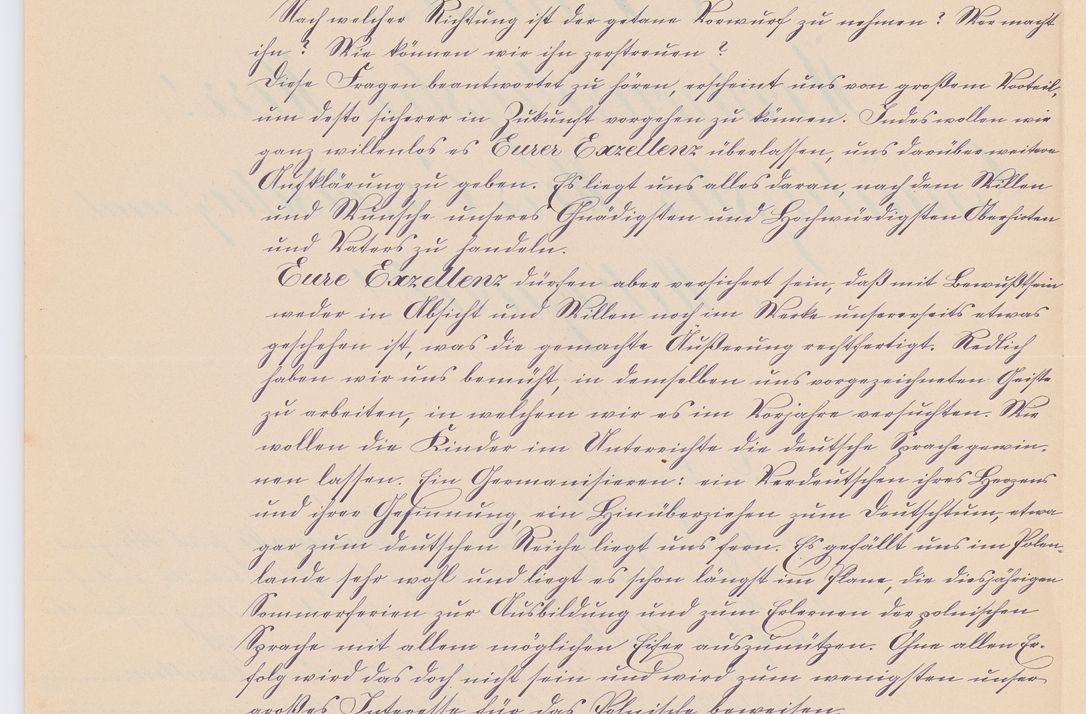 Nach welcher Richtung ist der getane Vorwurf zu nehmen? Wer macht
ihn? Wie können wir ihn zerstreuen?
Diese Fragen beantwortet zu hören, erscheint uns von großem Vorteil,
um desto sicherer in Zukunft vorgehen zu können. Indes wollen wir
ganz willenlos es Eurer Exzellenz überlassen, uns darüber weitere
Aufklärung zu geben. Es liegt uns alles daran, nach dem Willen
und Wunsche unseres Gnädigsten und Hochwürdigsten Oberhirten
und Vaters zu handeln.
Eure Exzellenz dürfen aber versichert sein, daß mit Bewußtsein
weder in Absicht und Willen noch im Werke unsererseits etwas
geschehen ist, was die gemachte Äußerung rechtfertigt. Redlich
haben wir uns bemüht, in demselben uns vorgezeichneten Geiste
zu arbeiten, in welchem wir es im Vorjahre versuchten. Wir
wollen die Kinder im Unterrichte die deutsche Sprache gewin-
nen lassen. Ein Germanisieren: ein Verdeutschen ihres Herzens
und ihrer Gesinnung, ein Hinüberziehen zum Deutschtum, etwa
gar zum deutschen Reiche liegt uns fern. Es gefällt uns im Polen-
lande sehr wohl und liegt es schon längst im Plane, die diesjährigen
Sommerferien zur Ausbildung und zum Erlernen der polnischen
Sprache mit allem möglichen Eifer auszunützen. Ohne allen Er-
folg wird das doch nicht sein und wird zum wenigsten unser
großes Interesse für das Polnische beweisen.